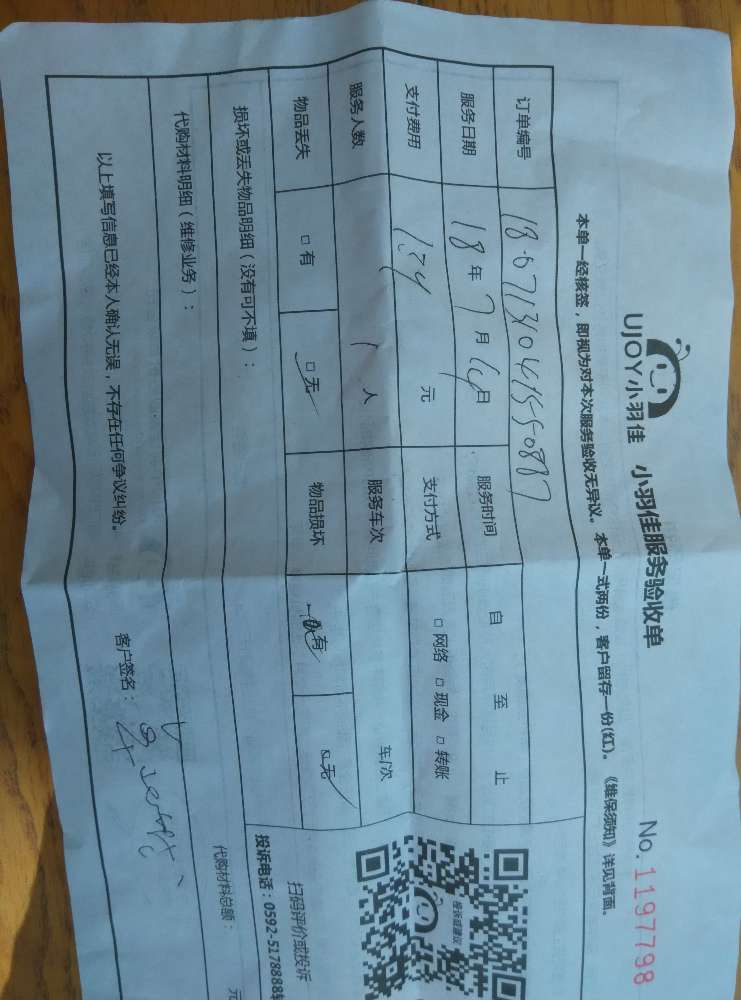 UJOY小羽佳 小羽佳服务验收单 No. 1197798
本单一经核签，即视为对本次服务验收无异议。本单一式两份，客户留存一份(红)。《维保须知》详见背面。
订单编号
服务日期 18 年 7 月 14 日 服务时间 自 至 止
支付费用 134 元 支付方式 □ 网络 □ 现金 □ 转账
服务人数 1 人 服务车次 车/次
物品丢失 □ 有 □ 无 物品损坏 □ 有 □ 无
损坏或丢失物品明细（没有可不填）：
扫码评价或投诉
投诉建议
投诉电话：0592-5178888
代购材料明细（维修业务）：
代购材料总额： 元
以上填写信息已经本人确认无误，不存在任何争议纠纷。 客户签名：